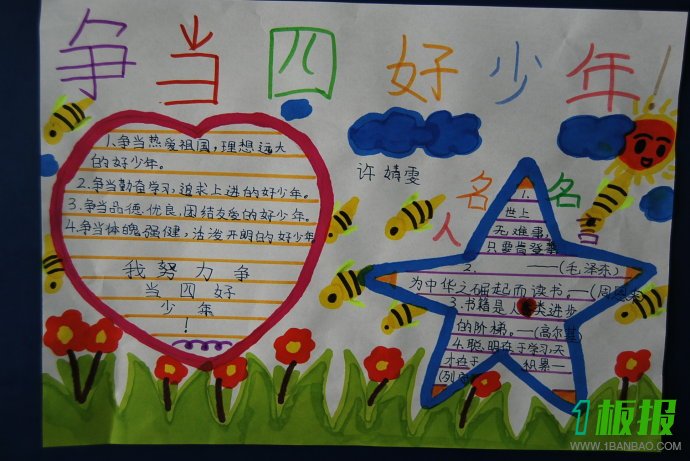 争当四好少年!
1.争当热爱祖国,理想远大
的好少年。
2.争当勤奋学习,追求上进的好少年。
3.争当品德优良,团结友爱的好少年。
4.争当体魄强健,活泼开明的好少年
我努力争
当四好
少年
!
许婧雯
名人名言
1.
世上
无难事,
只要肯登攀
2. ——(毛泽东)
为中华之崛起而读书。—(周恩来
3.书籍是人类进步
的阶梯。—(高尔基)
4.聪明在于学习,天
才在于 积累—
(列
1板报
WWW.1BANBAO.COM